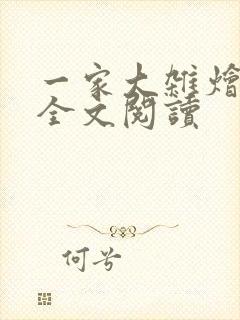 一家大雜燴
全文閱讀
何兮